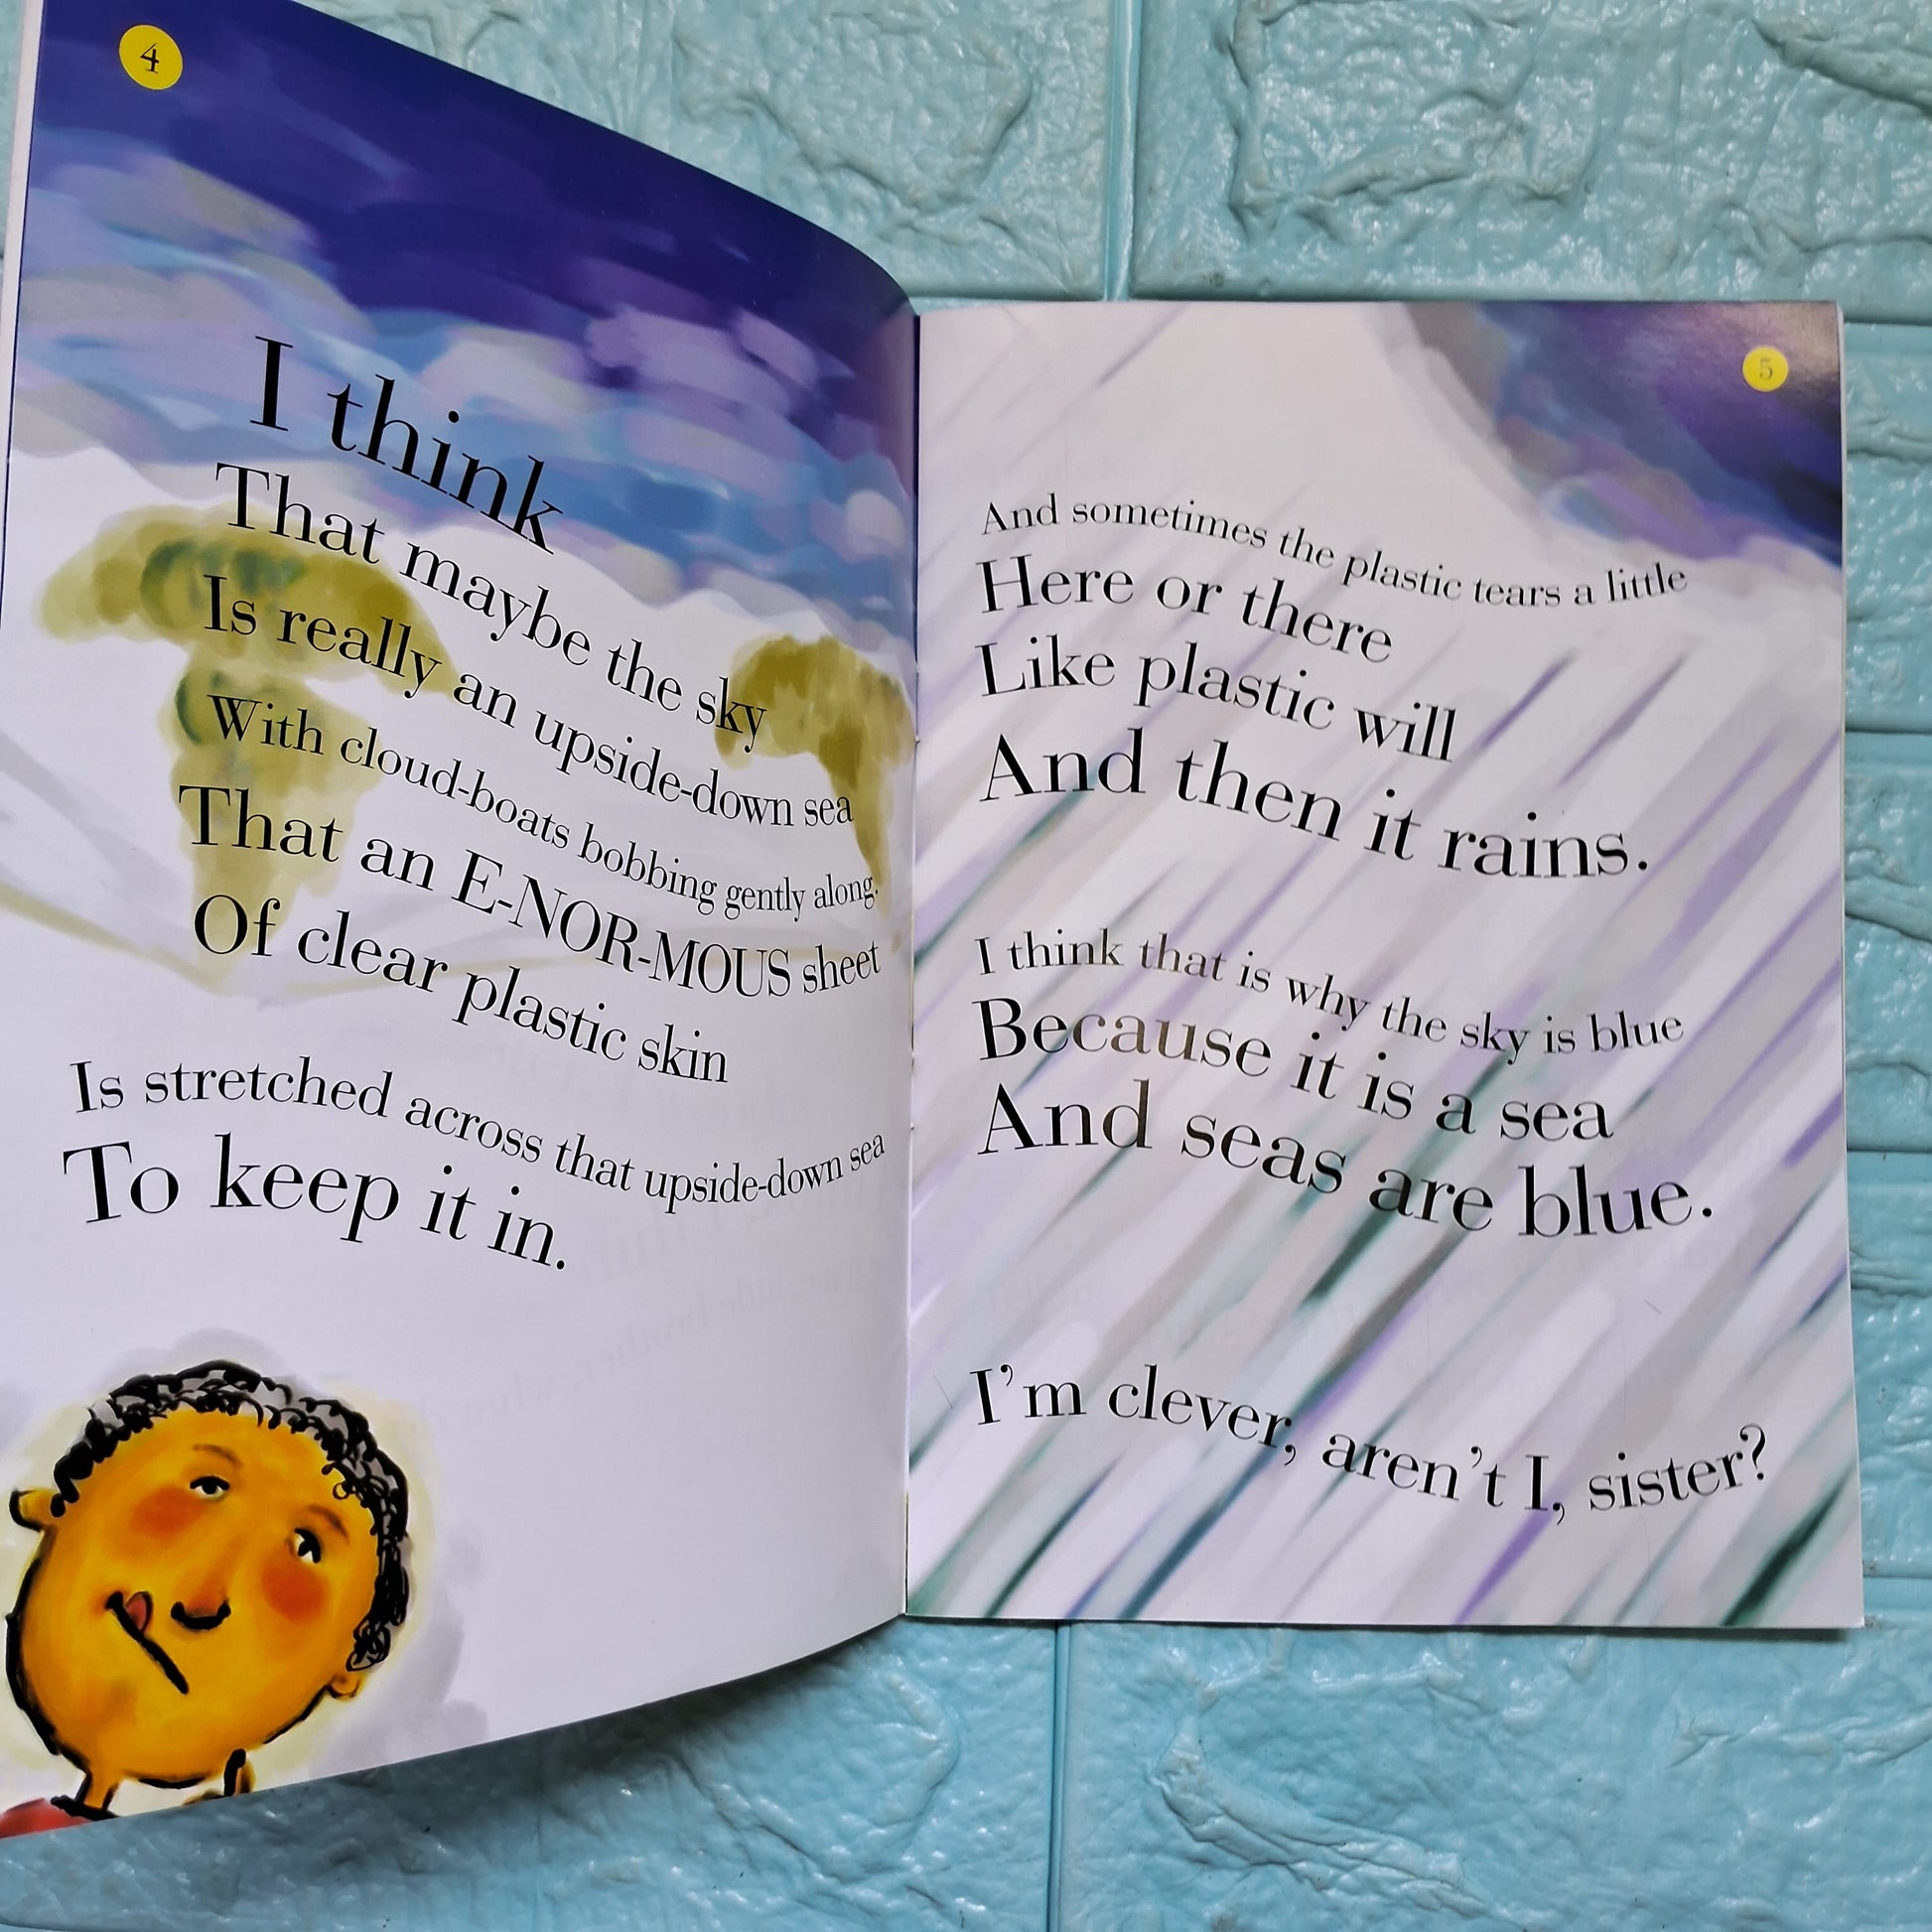 4
I think
That maybe the sky
Is really an upside-down sea
With cloud-boats bobbing gently along.
That an E-NOR-MOUS sheet
Of clear plastic skin
Is stretched across that upside-down sea
To keep it in.
5
And sometimes the plastic tears a little
Here or there
Like plastic will
And then it rains.
I think that is why the sky is blue
Because it is a sea
And seas are blue.
I'm clever, aren't I, sister?